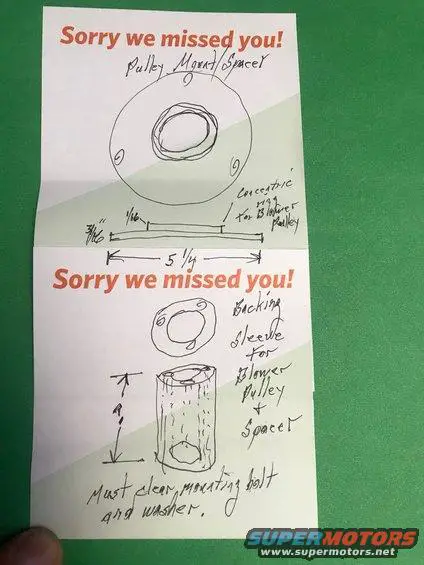 Sorry we missed you!
Pulley Mount/Spacer
Concentric
ring
For Blower
Pulley
1/16
3/16"
5 1/4
Sorry we missed you!
Backing
Sleeve
For
Blower
Pulley
+
Spacer
Must clear mounting bolt
and washer.
SUPERMOTORS
www.supermotors.net